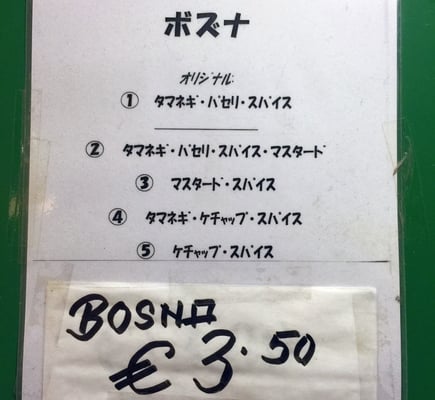 ボズナ
オリジナル:
① タマネギ・パセリ・スパイス
② タマネギ・パセリ・スパイス・マスタード
③ マスタード・スパイス
④ タマネギ・ケチャップ・スパイス
⑤ ケチャップ・スパイス
BOSNA
€ 3.50